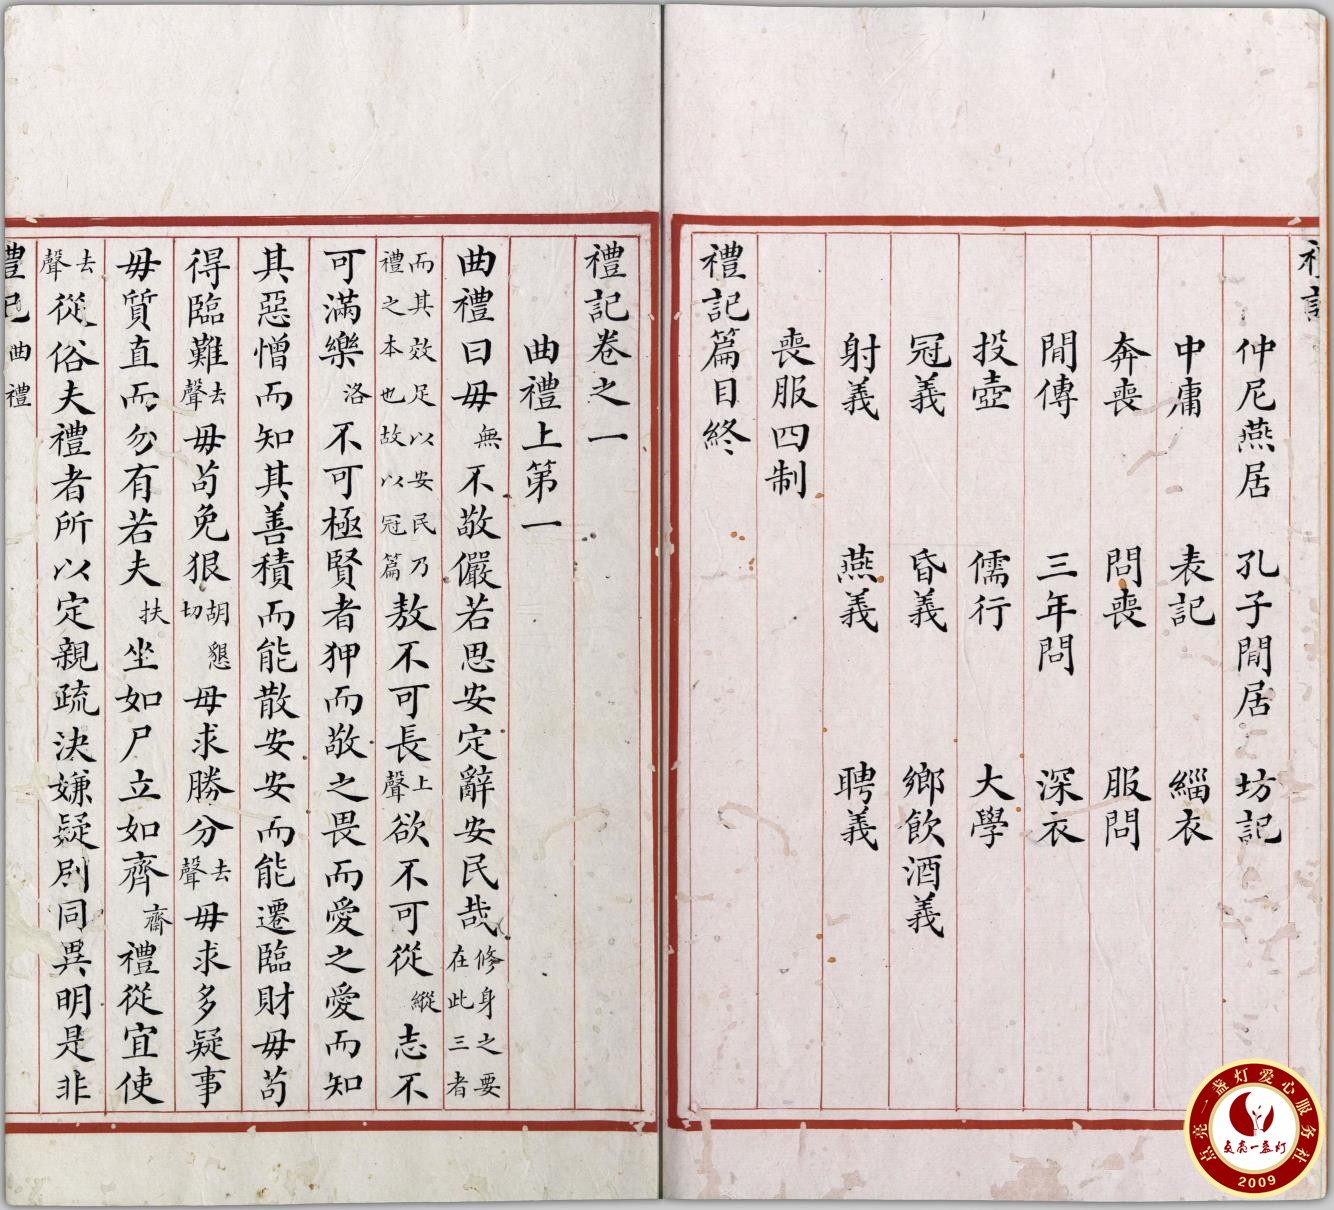 禮記
仲尼燕居 孔子閒居 坊記
中庸 表記 緇衣
奔喪 問喪 服問
間傳 三年問 深衣
投壺 儒行 大學
冠義 昏義 鄉飲酒義
射義 燕義 聘義
喪服四制
禮記篇目終
禮記卷之一
曲禮上第一
曲禮曰毋無不敬儼若思安定辭安民哉修身之要在此三者
而其效足以安民乃禮之本也故以冠篇敖不可長上聲欲不可從縱志不
可滿樂洛不可極賢者狎而敬之畏而愛之愛而知
其惡憎而知其善積而能散安安而能遷臨財毋苟
得臨難去聲毋苟免狠胡懇切毋求勝分去聲毋求多疑事
毋質直而勿有若夫扶坐如尸立如齊齋禮從宜使
去聲從俗夫禮者所以定親疏決嫌疑別同異明是非
禮記 曲禮
点亮一盏灯爱心服务社
点亮一盏灯
2009